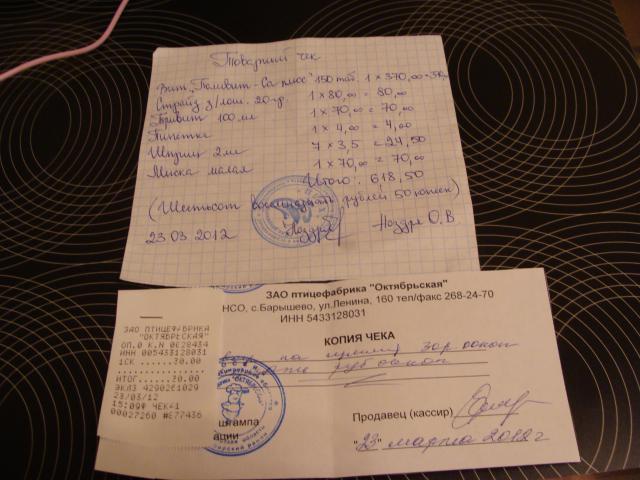 Товарный чек
Вит. "Поливит-Са плюс" 150 таб. 1 × 370,00 =
Страйд д/лош. 20 гр. 1 × 80,00 = 80,00
Тривит 100 мл 1 × 70,00 = 70,00
Пипетка 1 × 4,00 = 4,00
Шприц 2 мл 7 × 3,5 = 24,50
Миска малая 1 × 70,00 = 70,00
Итого: 618,50
(Шестьсот восемнадцать рублей 50 копеек)
23 03 2012 Ноздре О.В
ЗАО птицефабрика "Октябрьская"
НСО, с.Барышево, ул.Ленина, 160 тел/факс 268-24-70
ИНН 5433128031
КОПИЯ ЧЕКА
на сумму 30р 00коп
руб 00коп
штампа
Продавец (кассир)
"23" марта 2012 г
ЗАО ПТИЦЕФАБРИКА
"ОКТЯБРЬСКАЯ"
ОП.0 K.N 0628434
ИНН 005433128031
1СК ......30.00
ИТОГ......30.00
ЭКЛЗ 4290261029
23/03/12
15:09Ф ЧЕК#1
00027260 #E77436